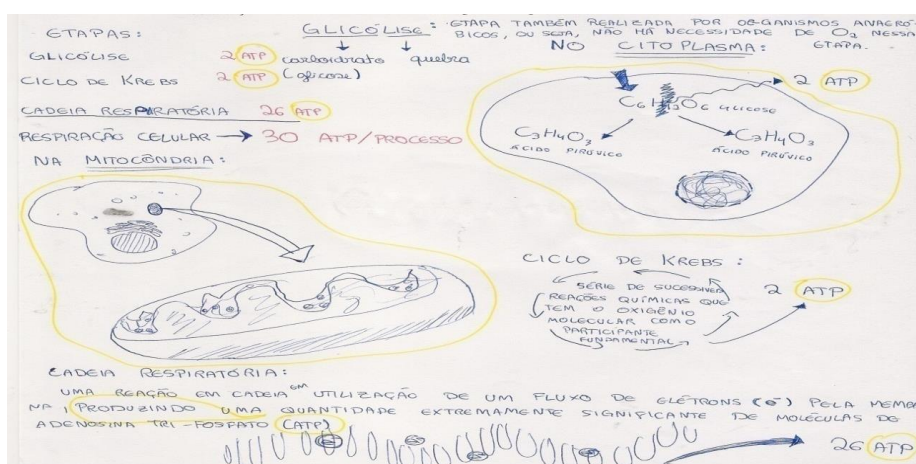 ETAPAS:
GLICÓLISE 2 ATP
CICLO DE KREBS 2 ATP
CADEIA RESPIRATÓRIA 26 ATP
RESPIRAÇÃO CELULAR → 30 ATP/PROCESSO
NA MITOCÔNDRIA:
GLICÓLISE: ETAPA TAMBÉM REALIZADA POR ORGANISMOS ANAERÓ-
BICOS, OU SEJA, NÃO HÁ NECESSIDADE DE O2 NESSA
ETAPA.
carboidrato quebra
(glicose)
NO CITOPLASMA:
2 ATP
GLICOSE
C3H4O3 C3H4O3
ÁCIDO PIRÚVICO ÁCIDO PIRÚVICO
CICLO DE KREBS:
SÉRIE DE SUCESSIVAS
REAÇÕES QUÍMICAS QUE
TEM O OXIGÊNIO
MOLECULAR COMO
PARTICIPANTE
FUNDAMENTAL
2 ATP
CADEIA RESPIRATÓRIA:
UMA REAÇÃO EM CADEIA EM UTILIZAÇÃO DE UM FLUXO DE ELÉTRONS (e-) PELA MEMB
NA, PRODUZINDO UMA QUANTIDADE EXTREMAMENTE SIGNIFICANTE DE MOLÉCULAS DE
ADENOSINA TRI-FOSFATO (ATP)
26 ATP